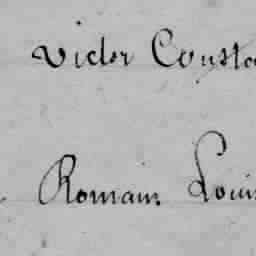 Victor Consta
Romain Louis